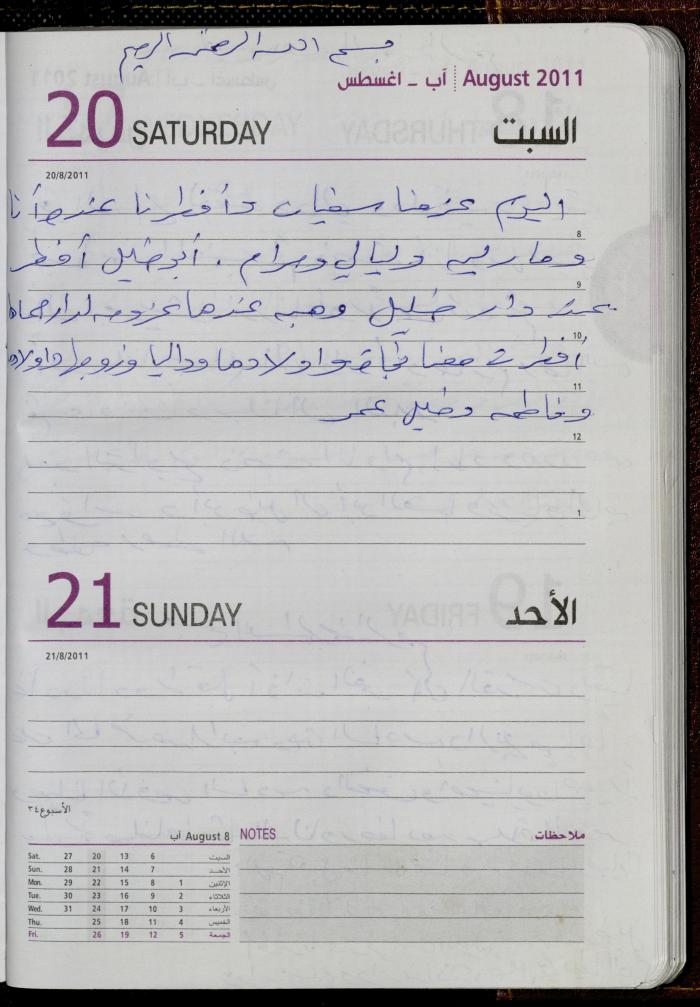 بسم الله الرحمن الرحيم
آب - اغسطس August 2011
20 SATURDAY السبت
20/8/2011
اليوم عزمنا سفيان وأفطرنا عنده أنا
8
وماريه وليالي ومرام . أبو خليل أفطر
9
عند دار خليل وهبه عندها عزومه لدار حماها
10
أفطرت معنا نجاة واولادها وداليا وزوجها واولاده
11
وفاطمه وخليل عمر
12
1
21 SUNDAY الأحد
21/8/2011
الأسبوع ٣٤
August 8 آب
NOTES ملاحظات
Sat. 27 20 13 6 السبت
Sun. 28 21 14 7 الأحد
Mon. 29 22 15 8 1 الإثنين
Tue. 30 23 16 9 2 الثلاثاء
Wed. 31 24 17 10 3 الأربعاء
Thu. 25 18 11 4 الخميس
Fri. 26 19 12 5 الجمعة